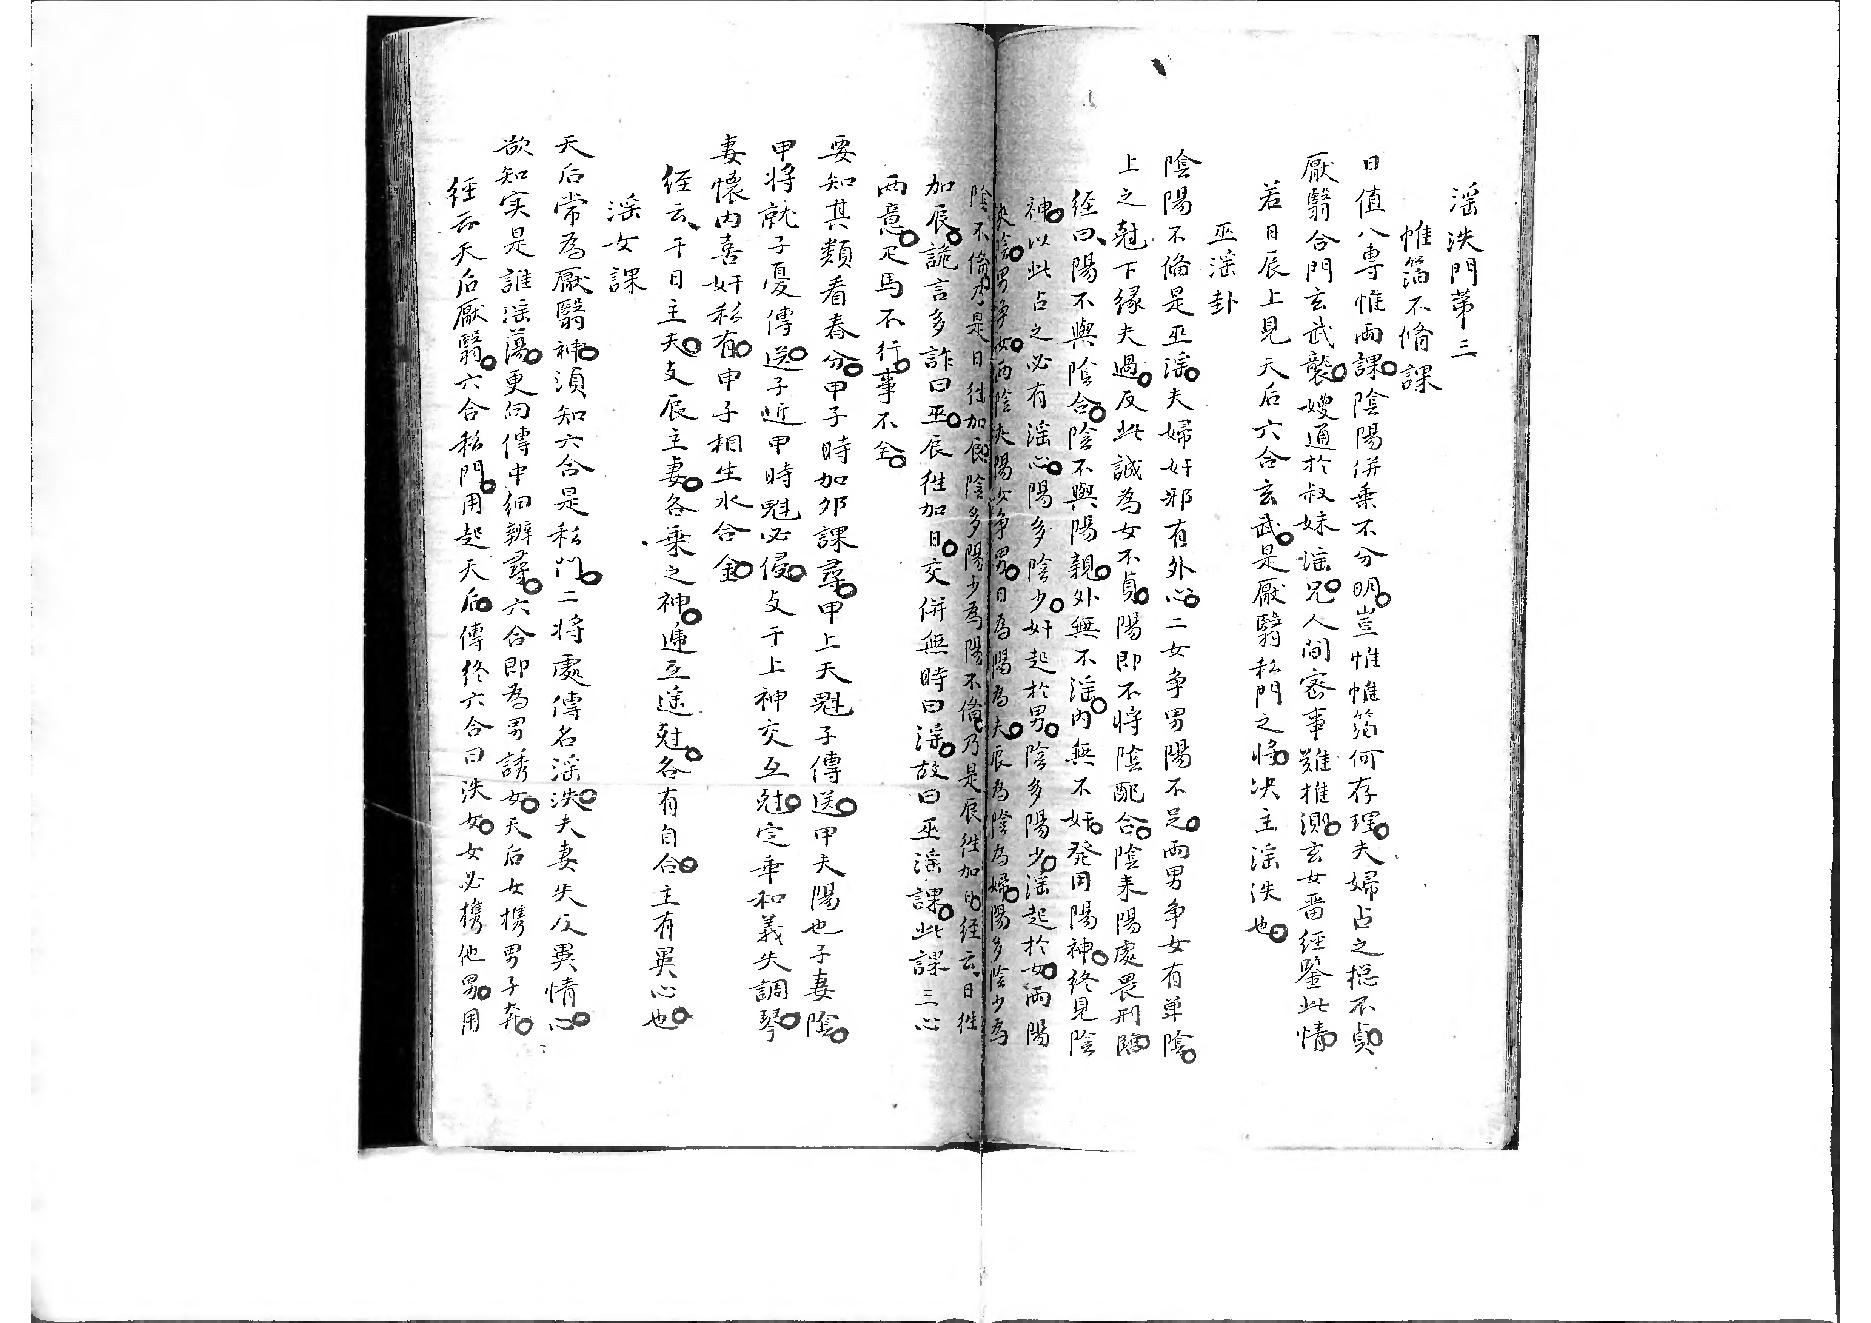 淫泆門第三
帷箔不脩課
日值八專惟兩課。陰陽併乗不分明。豈惟帷箔何存理。夫婦占之揔不貞。
厭翳合門玄武襲。嫂通於叔妹淫兄。人間密事難推測。玄女留經鑒此情。
若日辰上見天后六合玄武。是厭翳私門之将。决主淫泆也。
巫淫卦
陰陽不俻是巫淫。夫婦奸邪有外心。二女争男陽不足。兩男争女有单陰。
上之尅下縁夫過。反此誠為女不貞。陽即不将陰配合。陰来陽處畏刑臨。
经曰、陽不與陰合。陰不與陽親。外無不淫。内無不奸。発用陽神。终見陰
神。以此占之必有淫心。陽多陰少。奸起於男。陰多陽少。淫起於女。兩陽
夾陰。男争女。兩陰夾陽。女争男。日為陽為夫。辰為陰為婦。陽多陰少為
陰不俻。乃是日徃加辰。陰多陽少為陽不俻。乃是辰徃加日。经云、日徃
加辰。詭言多詐曰巫。辰徃加日。交併無時曰淫。故曰巫淫課。此課三心
兩意。疋馬不行。事不全。
要知其類看春分。甲子時加夘課尋。甲上天魁子傳送。甲夫陽也子妻陰。
甲将就子憂傳送。子近甲時魁必侵。支干上神交互尅。定乖和義失調琴。
妻懷内喜奸私有。甲子相生水合金。
经云、干日主夫。支辰主妻。各乗之神。逓互逺尅。各有自合。主有異心也。
淫女課
天后常為厭翳神。須知六合是私門。二将處傳名淫泆。夫妻失友異情心。
欲知实是誰淫蕩。更向傳中细辨尋。六合即為男誘女。天后女㩦男子奔。
经云天后厭翳。六合私門。用起天后。傳终六合曰泆女。女必㩦他男。用